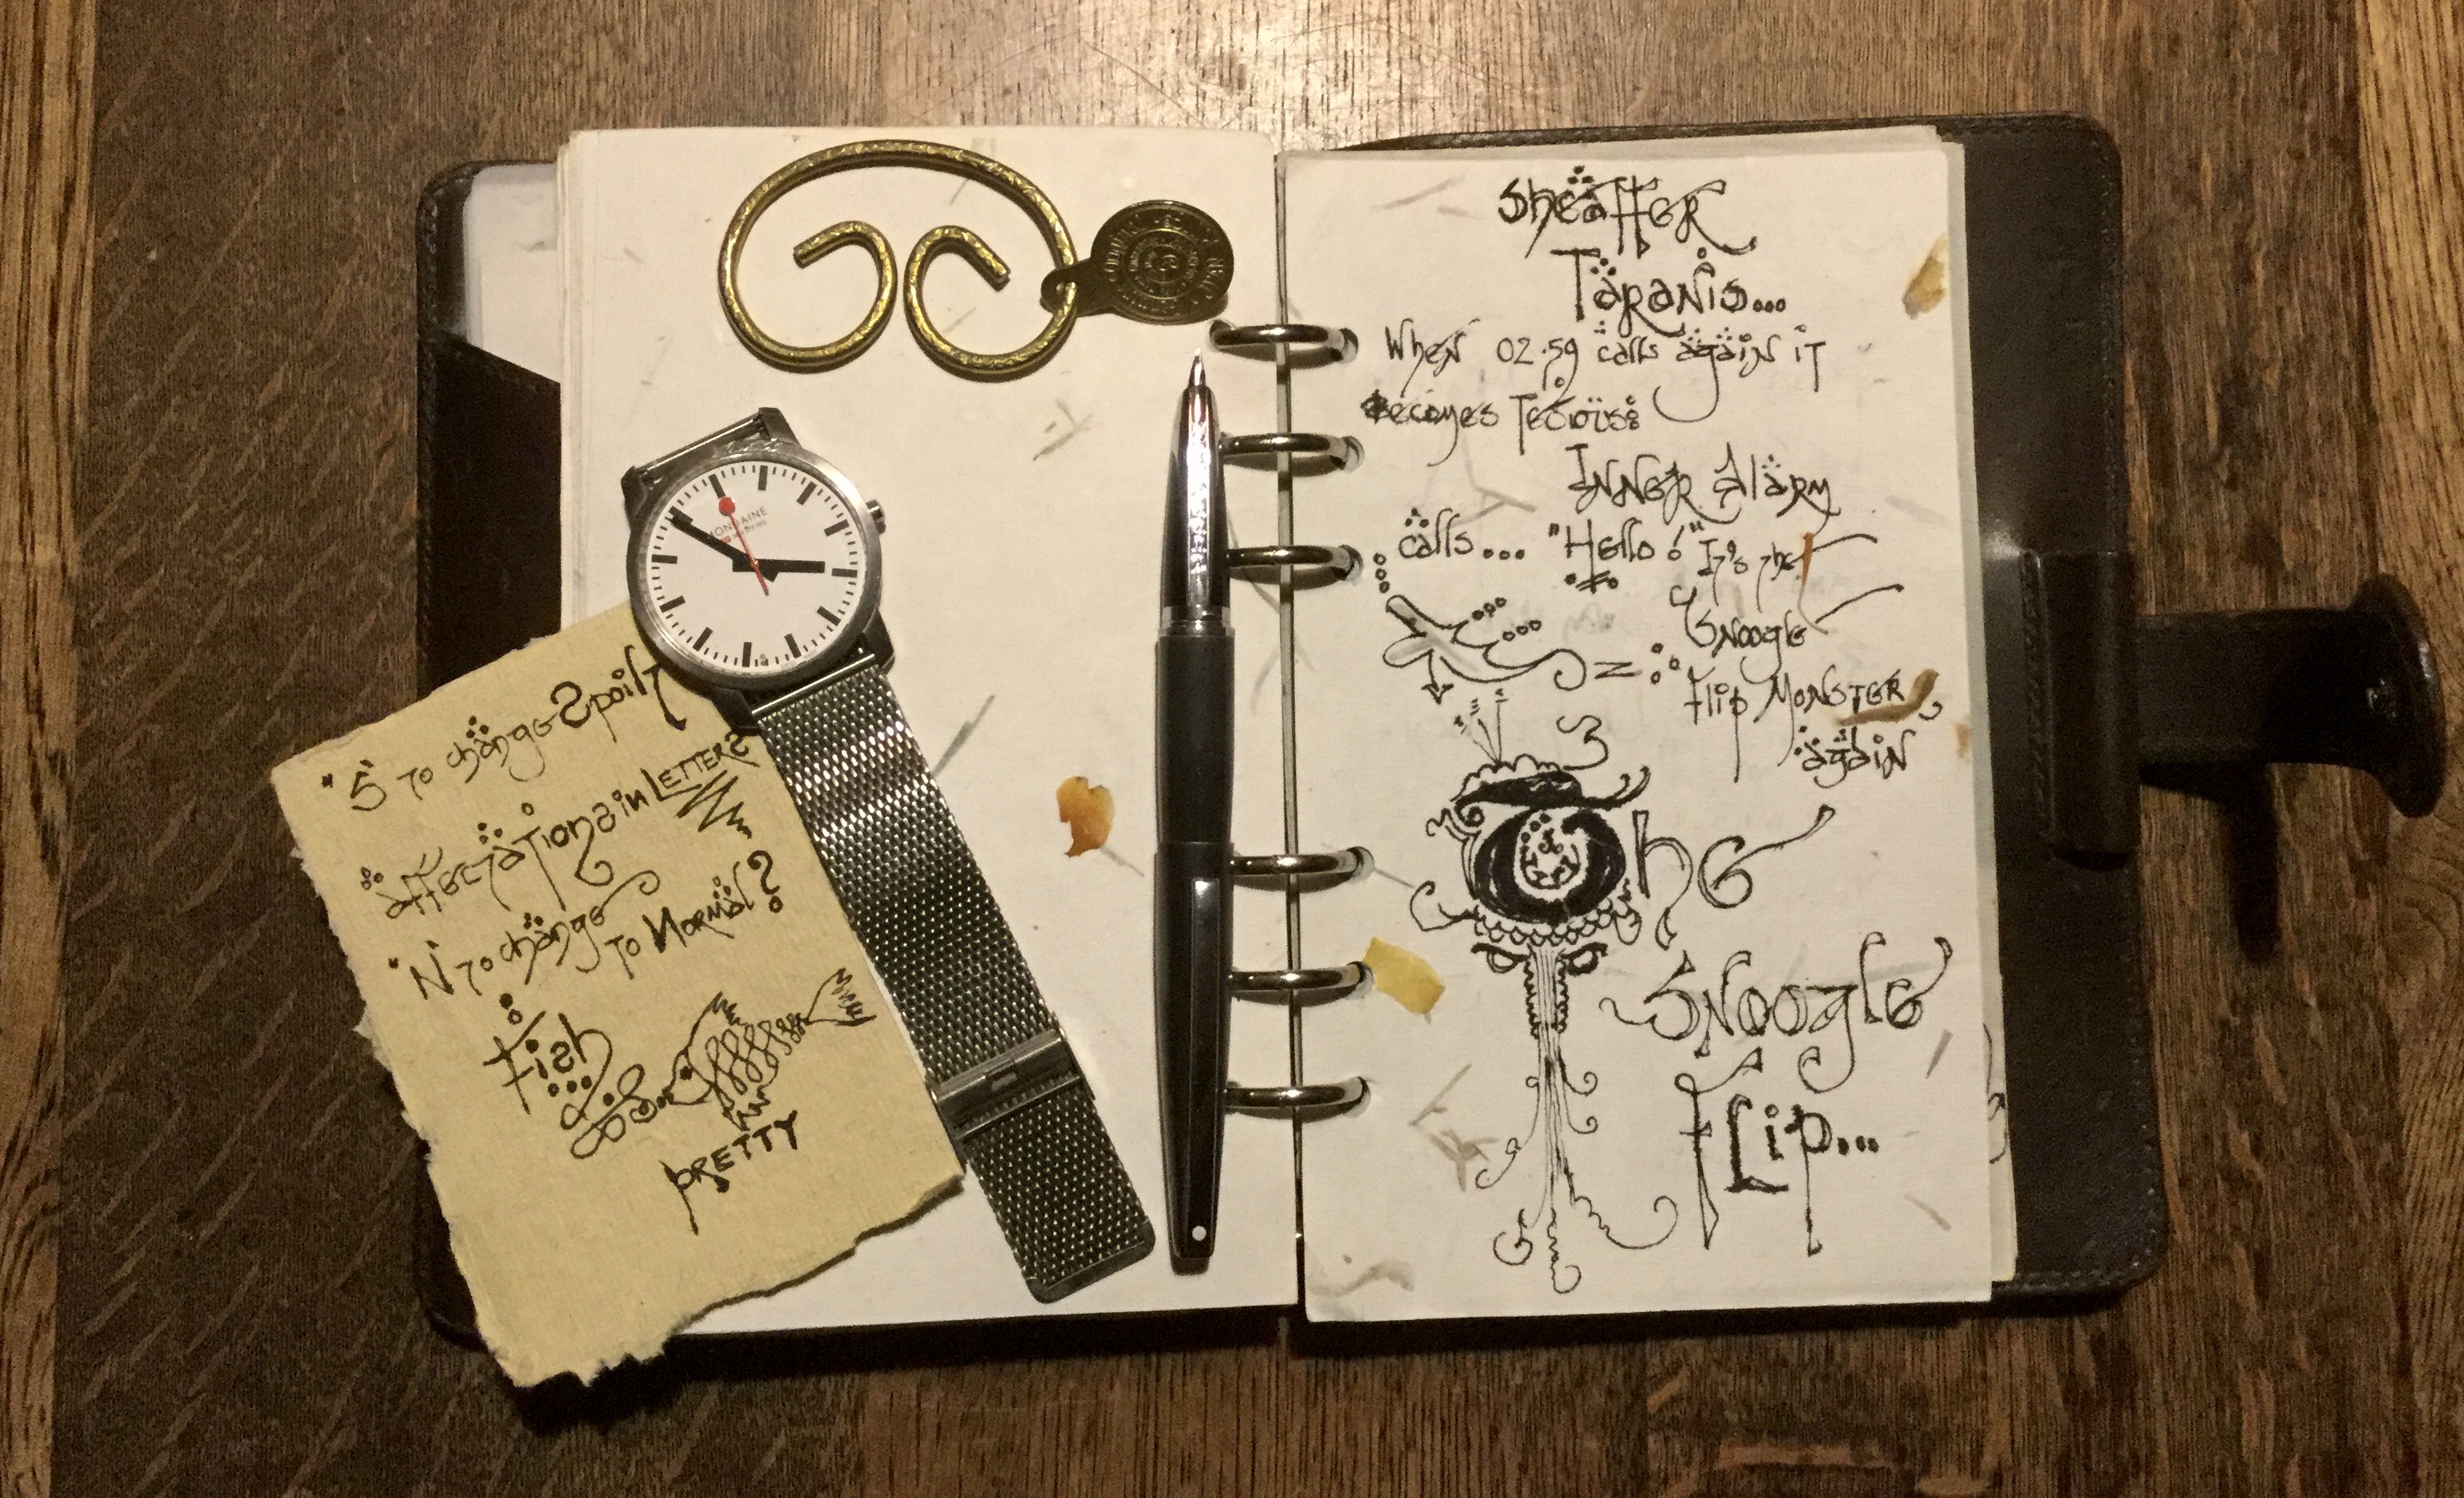 Sheaffer
Taranis...
When 02.59 calls again it
becomes Tedious:
INNER Alarm
calls... "Hello!" It's the
Snoogle
= Flip MONSTER
again
The
Snoogle
Flip...
MONDAINE
"S to change Spoils
affectations in LETTERS
"N to change
to Normal?
Fish
PRETTY